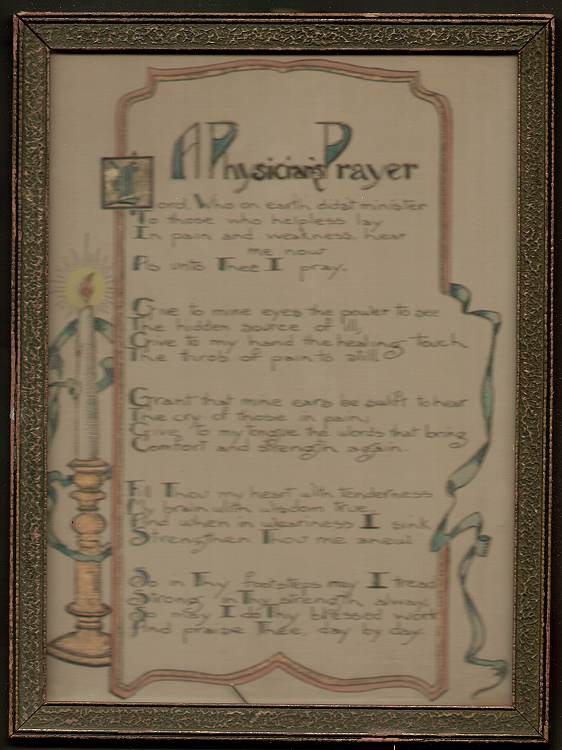 A Physician's Prayer
Lord, Who on earth didst minister
To those who helpless lay
In pain and weakness, hear
me now
As unto Thee I pray.
Give to mine eyes the power to see
The hidden source of ill,
Give to my hand the healing touch
The throb of pain to still.
Grant that mine ears be swift to hear
The cry of those in pain;
Give to my tongue the words that bring
Comfort and strength again.
Fill Thou my heart with tenderness
My brain with wisdom true,
And when in weariness I sink
Strengthen Thou me anew.
So in Thy footsteps may I tread
Strong in Thy strength always
So may I do Thy blessed work
And praise Thee, day by day.